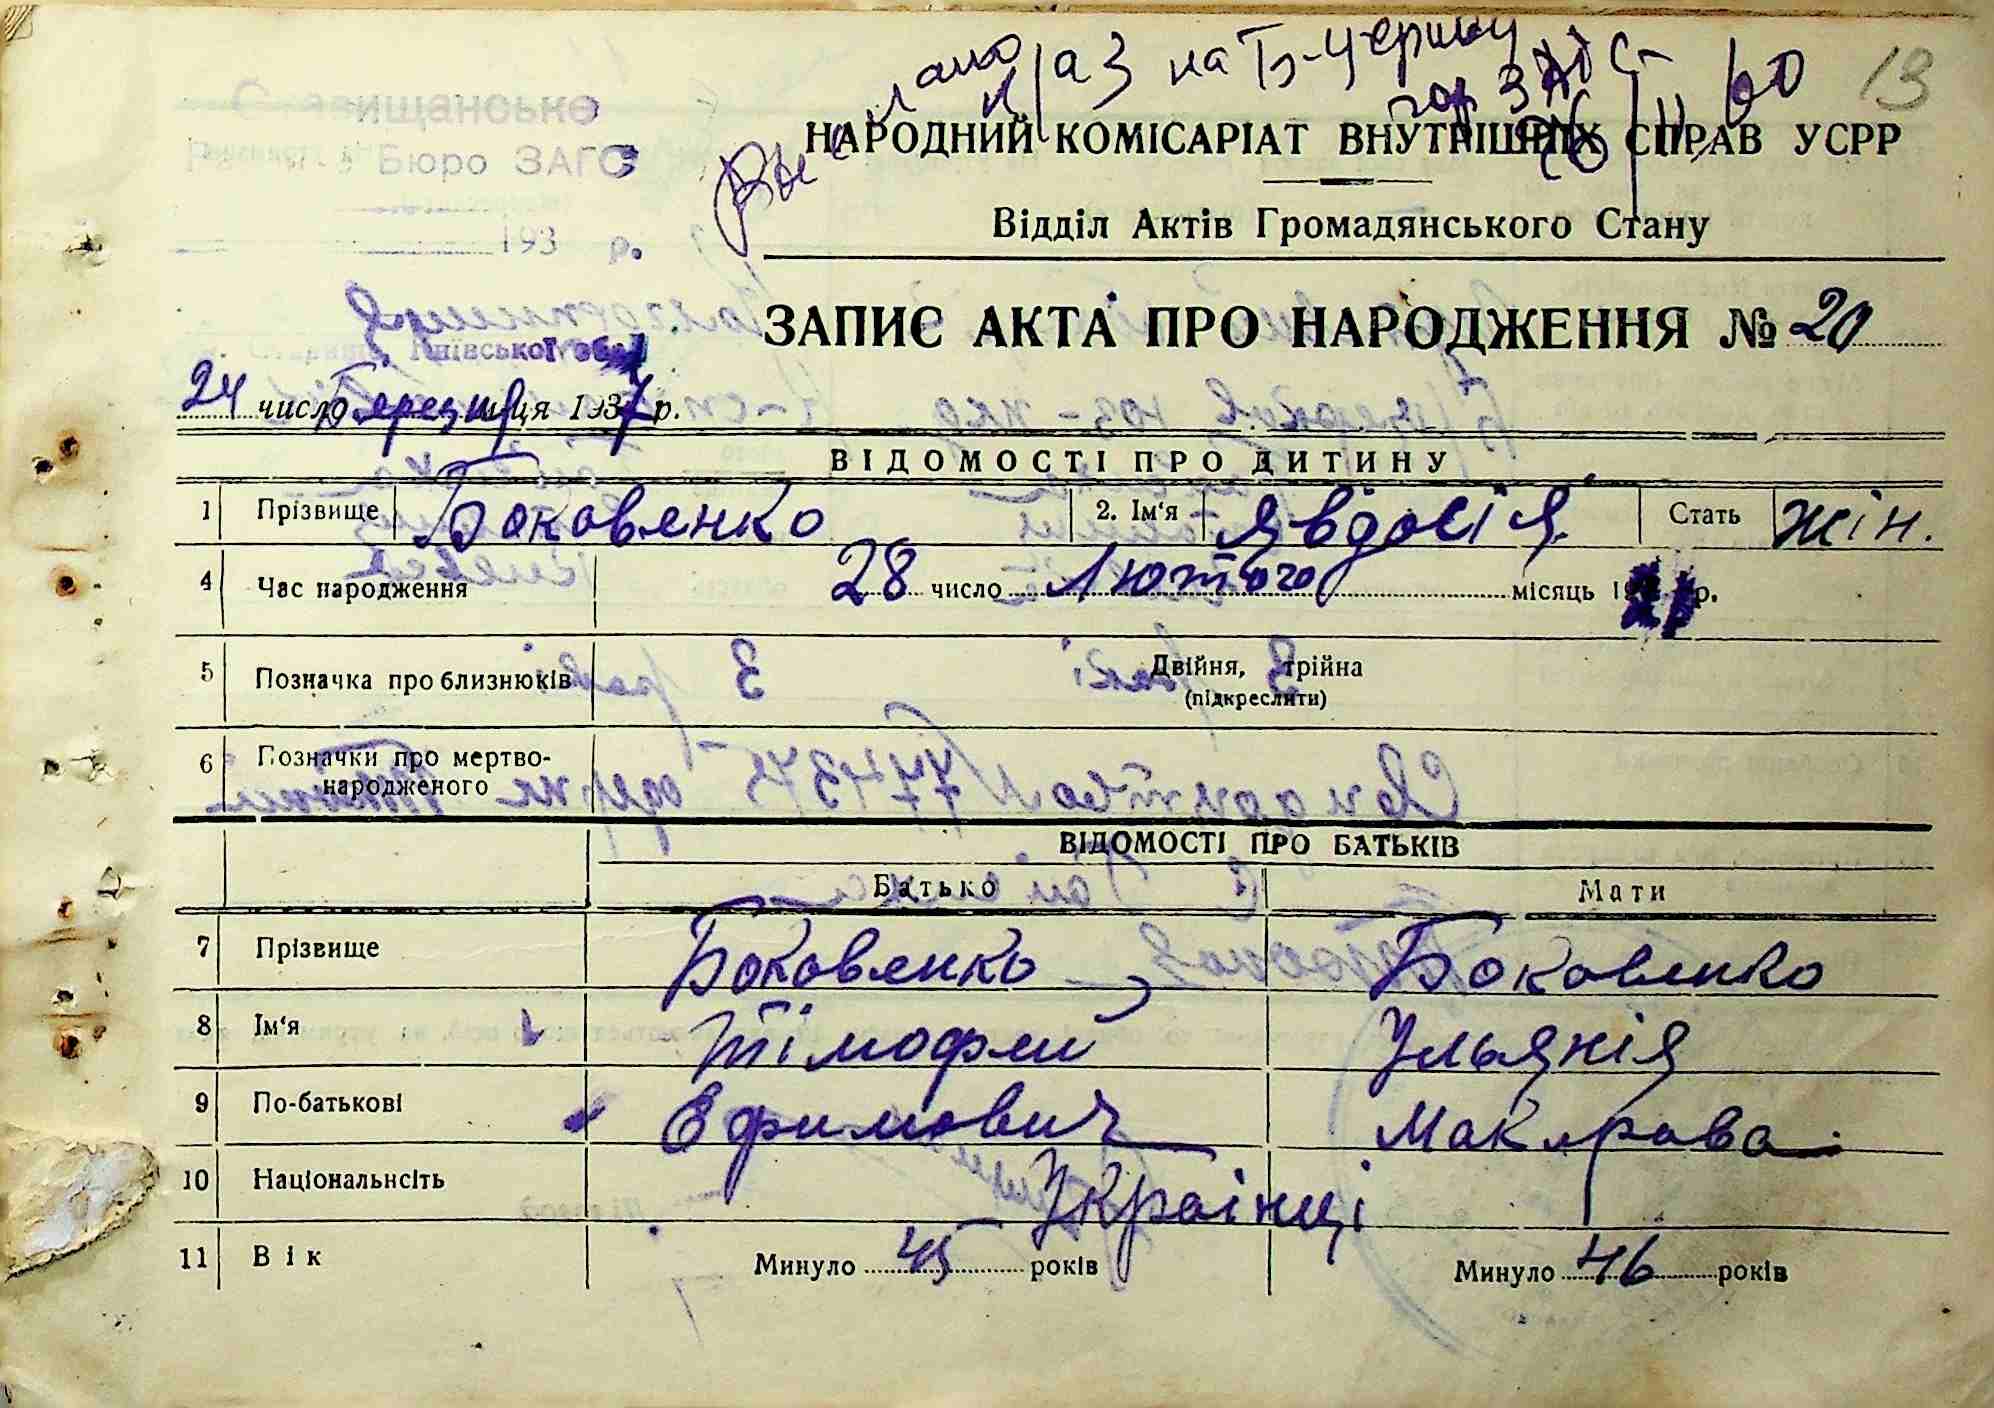 на Б-Церкву
60
13
Бюро ЗАГС
НАРОДНИЙ КОМІСАРІАТ ВНУТРІШНІХ СПРАВ УСРР
Відділ Актів Громадянського Стану
193 р.
ЗАПИС АКТА ПРО НАРОДЖЕННЯ № 20
Київської обл
24 число березня м-ця 1937 р.
ВІДОМОСТІ ПРО ДИТИНУ
1 Прізвище Боковенко 2. Ім'я Явдосія Стать жін.
4 Час народження 28 число Лютого місяць р.
5 Позначка про близнюків Двійня, трійна
(підкреслити)
6 Позначки про мертво-
народженого
ВІДОМОСТІ ПРО БАТЬКІВ
Батько Мати
7 Прізвище Боковенко Боковенко
8 Ім'я Тімофей Ульянія
9 По-батькові Ефимович Макарова
10 Національнсіть Українці
11 Вік Минуло 45 років Минуло 46 років